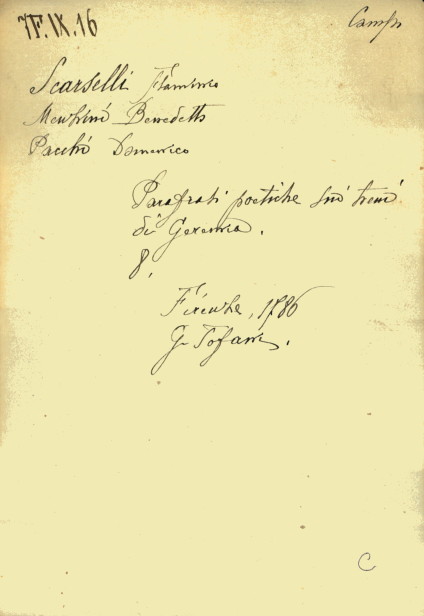 7F.IX.16
Camps
Scarselli Flaminio
Menzini Benedetto
Pacchi Domenico
Parafrasi poetiche sui treni
di Geremia.
8,
Firenze, 1786
G. Tofani.
C